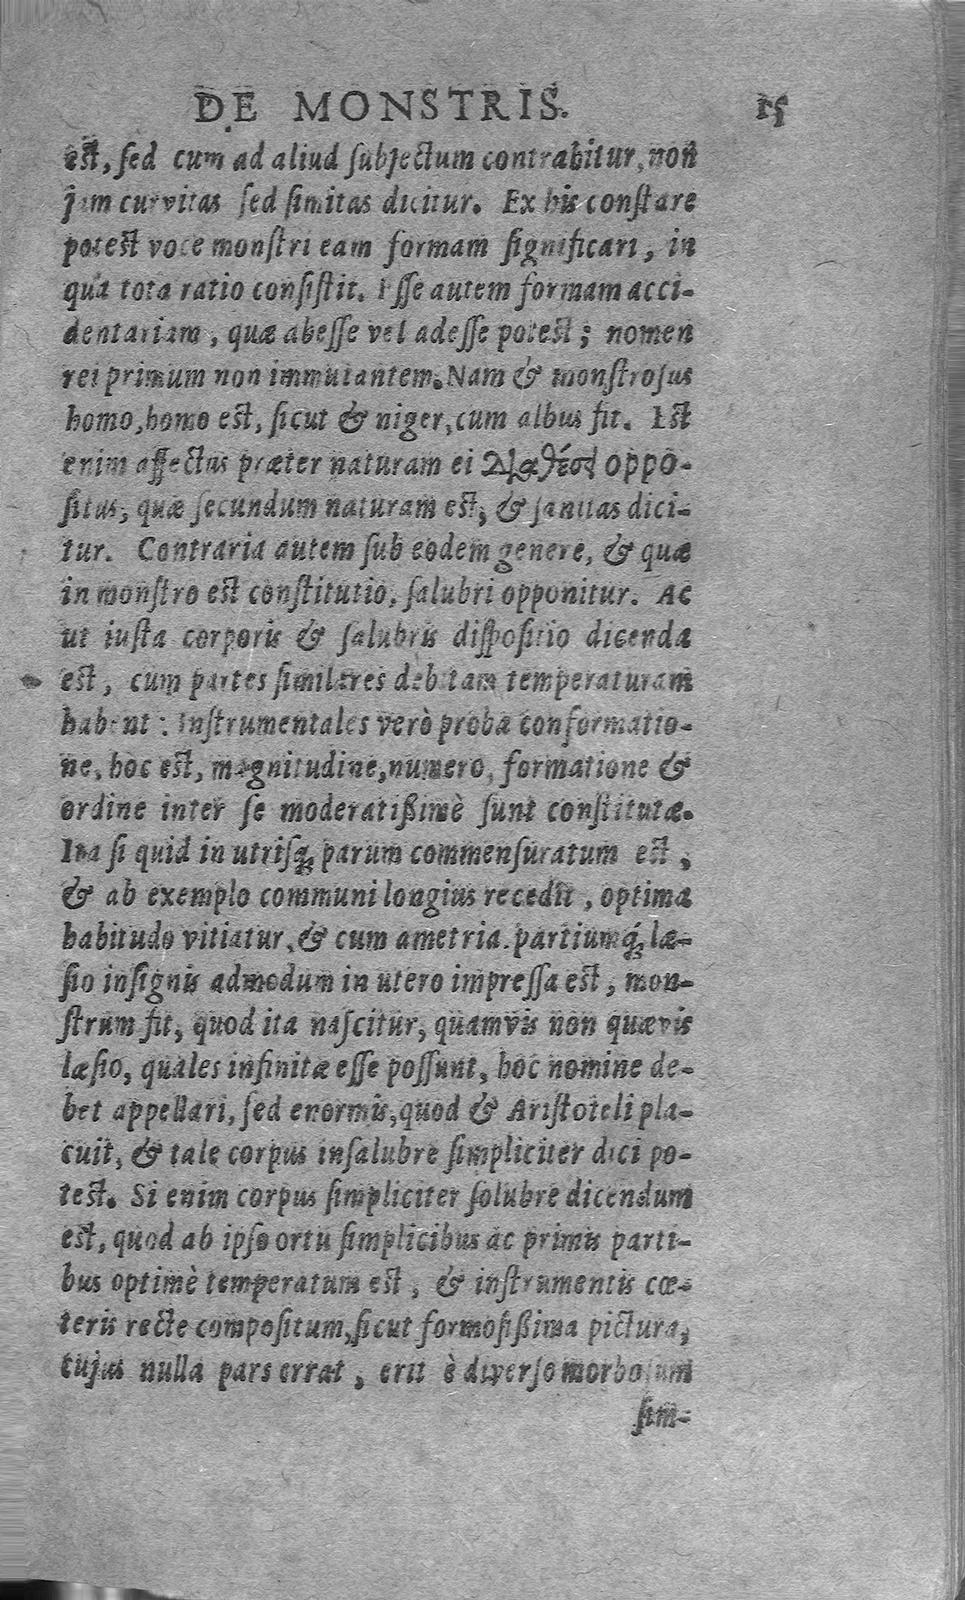 DE MONSTRIS. 15
est, sed cum ad aliud subjectum contrahitur, non
jam curvitas sed simitas dicitur. Ex his constare
potest voce monstri eam formam significari, in
qua tota ratio consistit. Esse autem formam acci-
dentariam, quæ abesse vel adesse potest; nomen
rei primum non immutantem. Nam & monstrosus
homo, homo est, sicut & niger, cum albus fit. Est
enim affectus præter naturam ei διαθέσει oppo-
situs, quæ secundum naturam est, & sanitas dici-
tur. Contraria autem sub eodem genere, & quæ
in monstro est constitutio, salubri opponitur. Ac
ut iusta corporis & salubris dispositio dicenda
est, cum partes similares debitam temperaturam
habent: Instrumentales verò proba conformatio-
ne, hoc est, magnitudine, numero, formatione &
ordine inter se moderatißimè sunt constitutæ.
Ita si quid in utrisq; parum commensuratum est,
& ab exemplo communi longius recedit, optima
habitudo vitiatur, & cum ametria partiumq́; læ-
sio insignis admodum in utero impressa est, mon-
strum fit, quod ita nascitur, quamvis non quævis
læsio, quales infinitæ esse possunt, hoc nomine de-
bet appellari, sed enormis, quod & Aristoteli pla-
cuit, & tale corpus insalubre simpliciter dici po-
test. Si enim corpus simpliciter solubre dicendum
est, quod ab ipso ortu simplicibus ac primis parti-
bus optimè temperatum est, & instrumentis cœ-
teris recte compositum, sicut formosißima pictura,
cujus nulla pars errat, erit è diverso morbosum
sim-